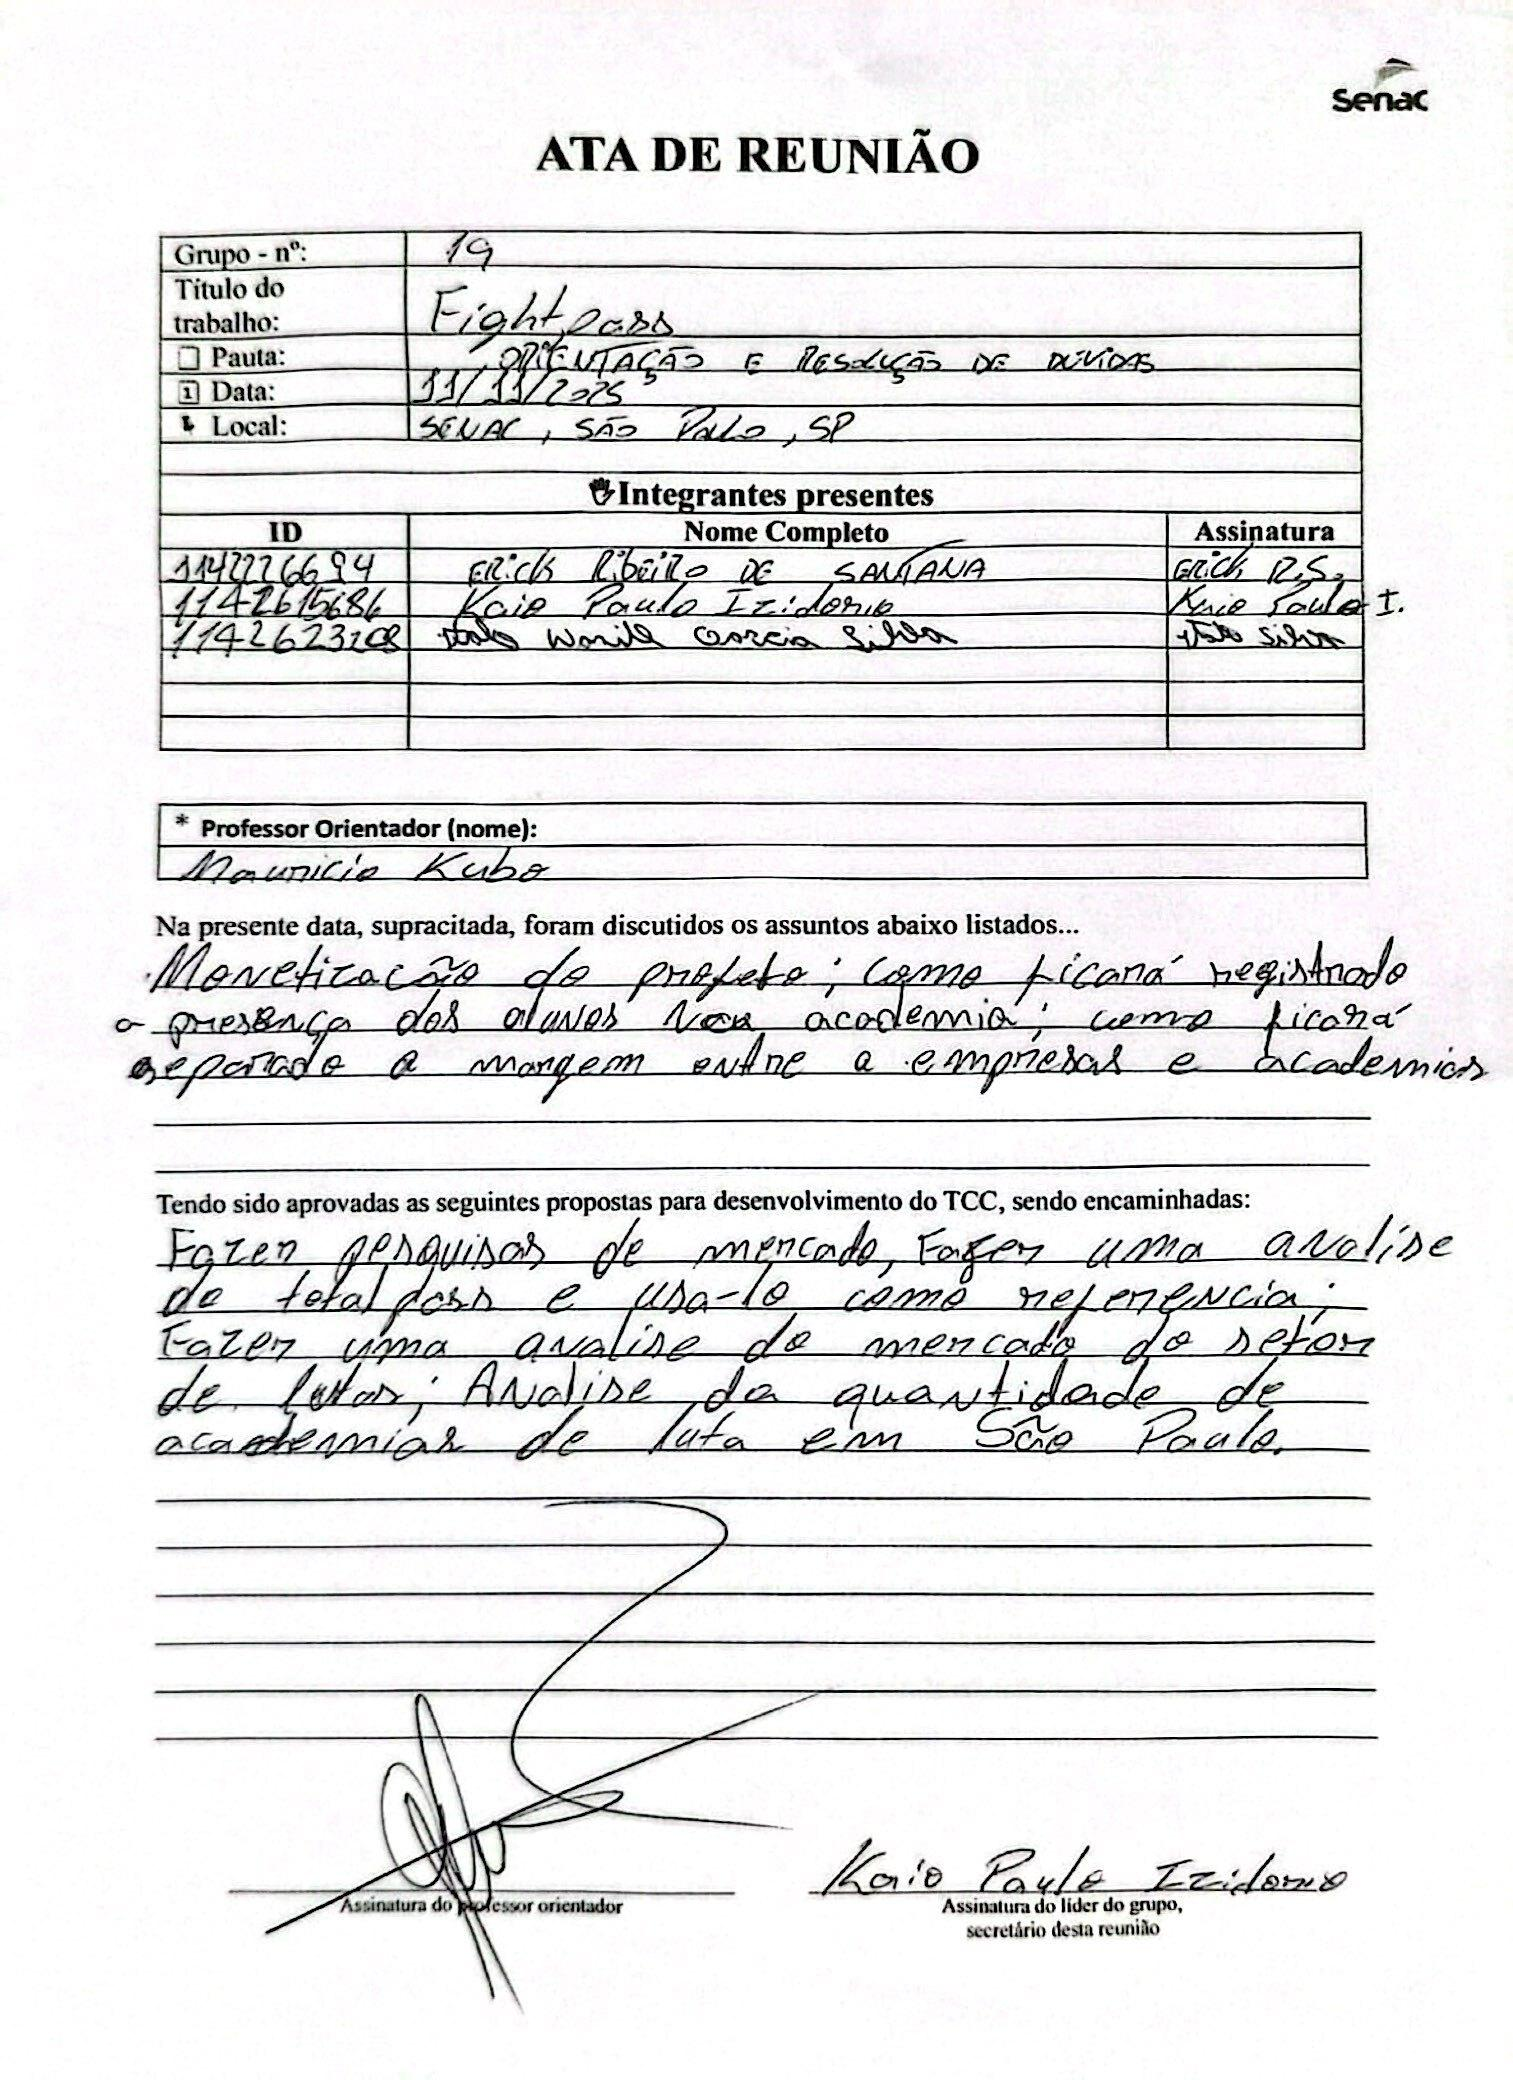 Senac
ATA DE REUNIÃO
Grupo - nº: 19
Título do
trabalho: Fightpass
Pauta: ORIENTAÇÃO E RESOLUÇÃO DE DÚVIDAS
Data: 11/11/2025
Local: SENAC, SÃO PAULO, SP
Integrantes presentes
ID Nome Completo Assinatura
1142226694 ERICK RIBEIRO DE SANTANA ERICK R.S.
1142615686 Kaio Paulo Izidorio Kaio Paulo I.
1142623208 Garcia Silva Silva
* Professor Orientador (nome):
Mauricio Kubo
Na presente data, supracitada, foram discutidos os assuntos abaixo listados...
Monetização do projeto; como ficará registrado
a presença dos alunos academia; como ficará
separado a margem entre a empresas e academias
Tendo sido aprovadas as seguintes propostas para desenvolvimento do TCC, sendo encaminhadas:
Fazer pesquisas de mercado, Fazer uma analíse
do totalpass e usa-lo como referencia;
Fazer uma analise do mercado do setor
de lutas; Analise da quantidade de
academias de luta em São Paulo.
Assinatura do professor orientador
Kaio Paulo Izidorio
Assinatura do líder do grupo,
secretário desta reunião